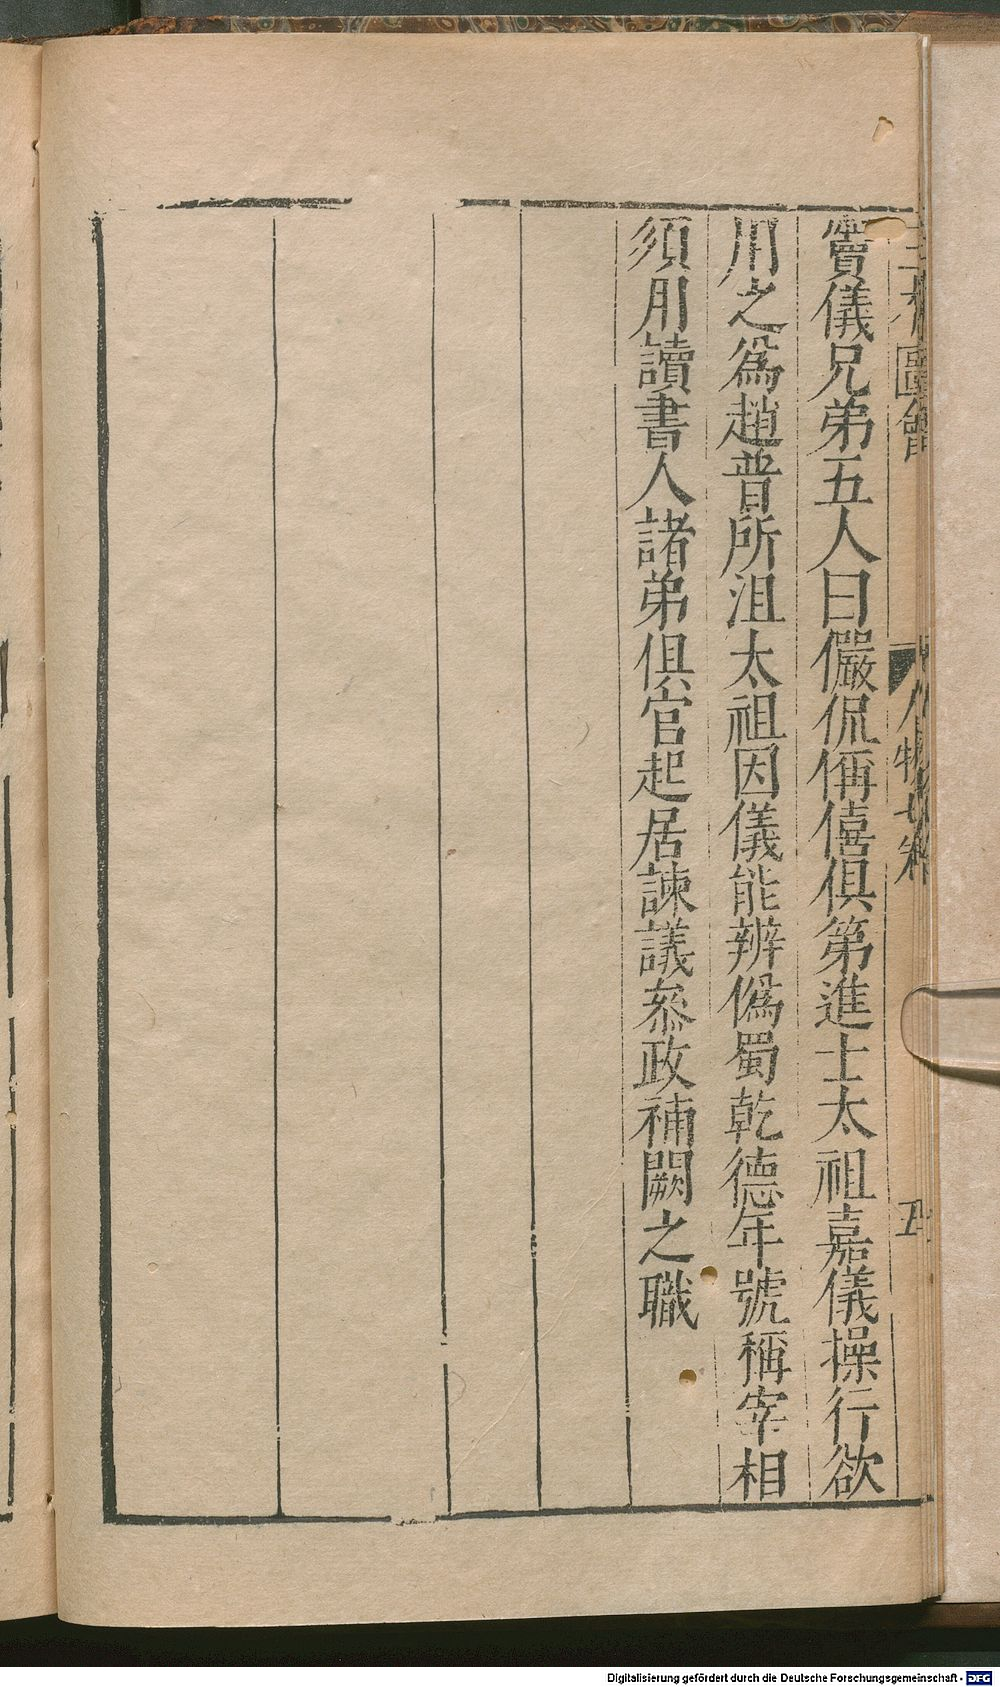 三才圖會 人物七卷 五
竇儀兄弟五人曰儼侃偁僖俱第進士太祖嘉儀操行欲
用之爲趙普所沮太祖因儀能辨僞蜀乾德年號稱宰相
須用讀書人諸弟俱官起居諫議叅政補闕之職
Digitalisierung gefördert durch die Deutsche Forschungsgemeinschaft - DFG